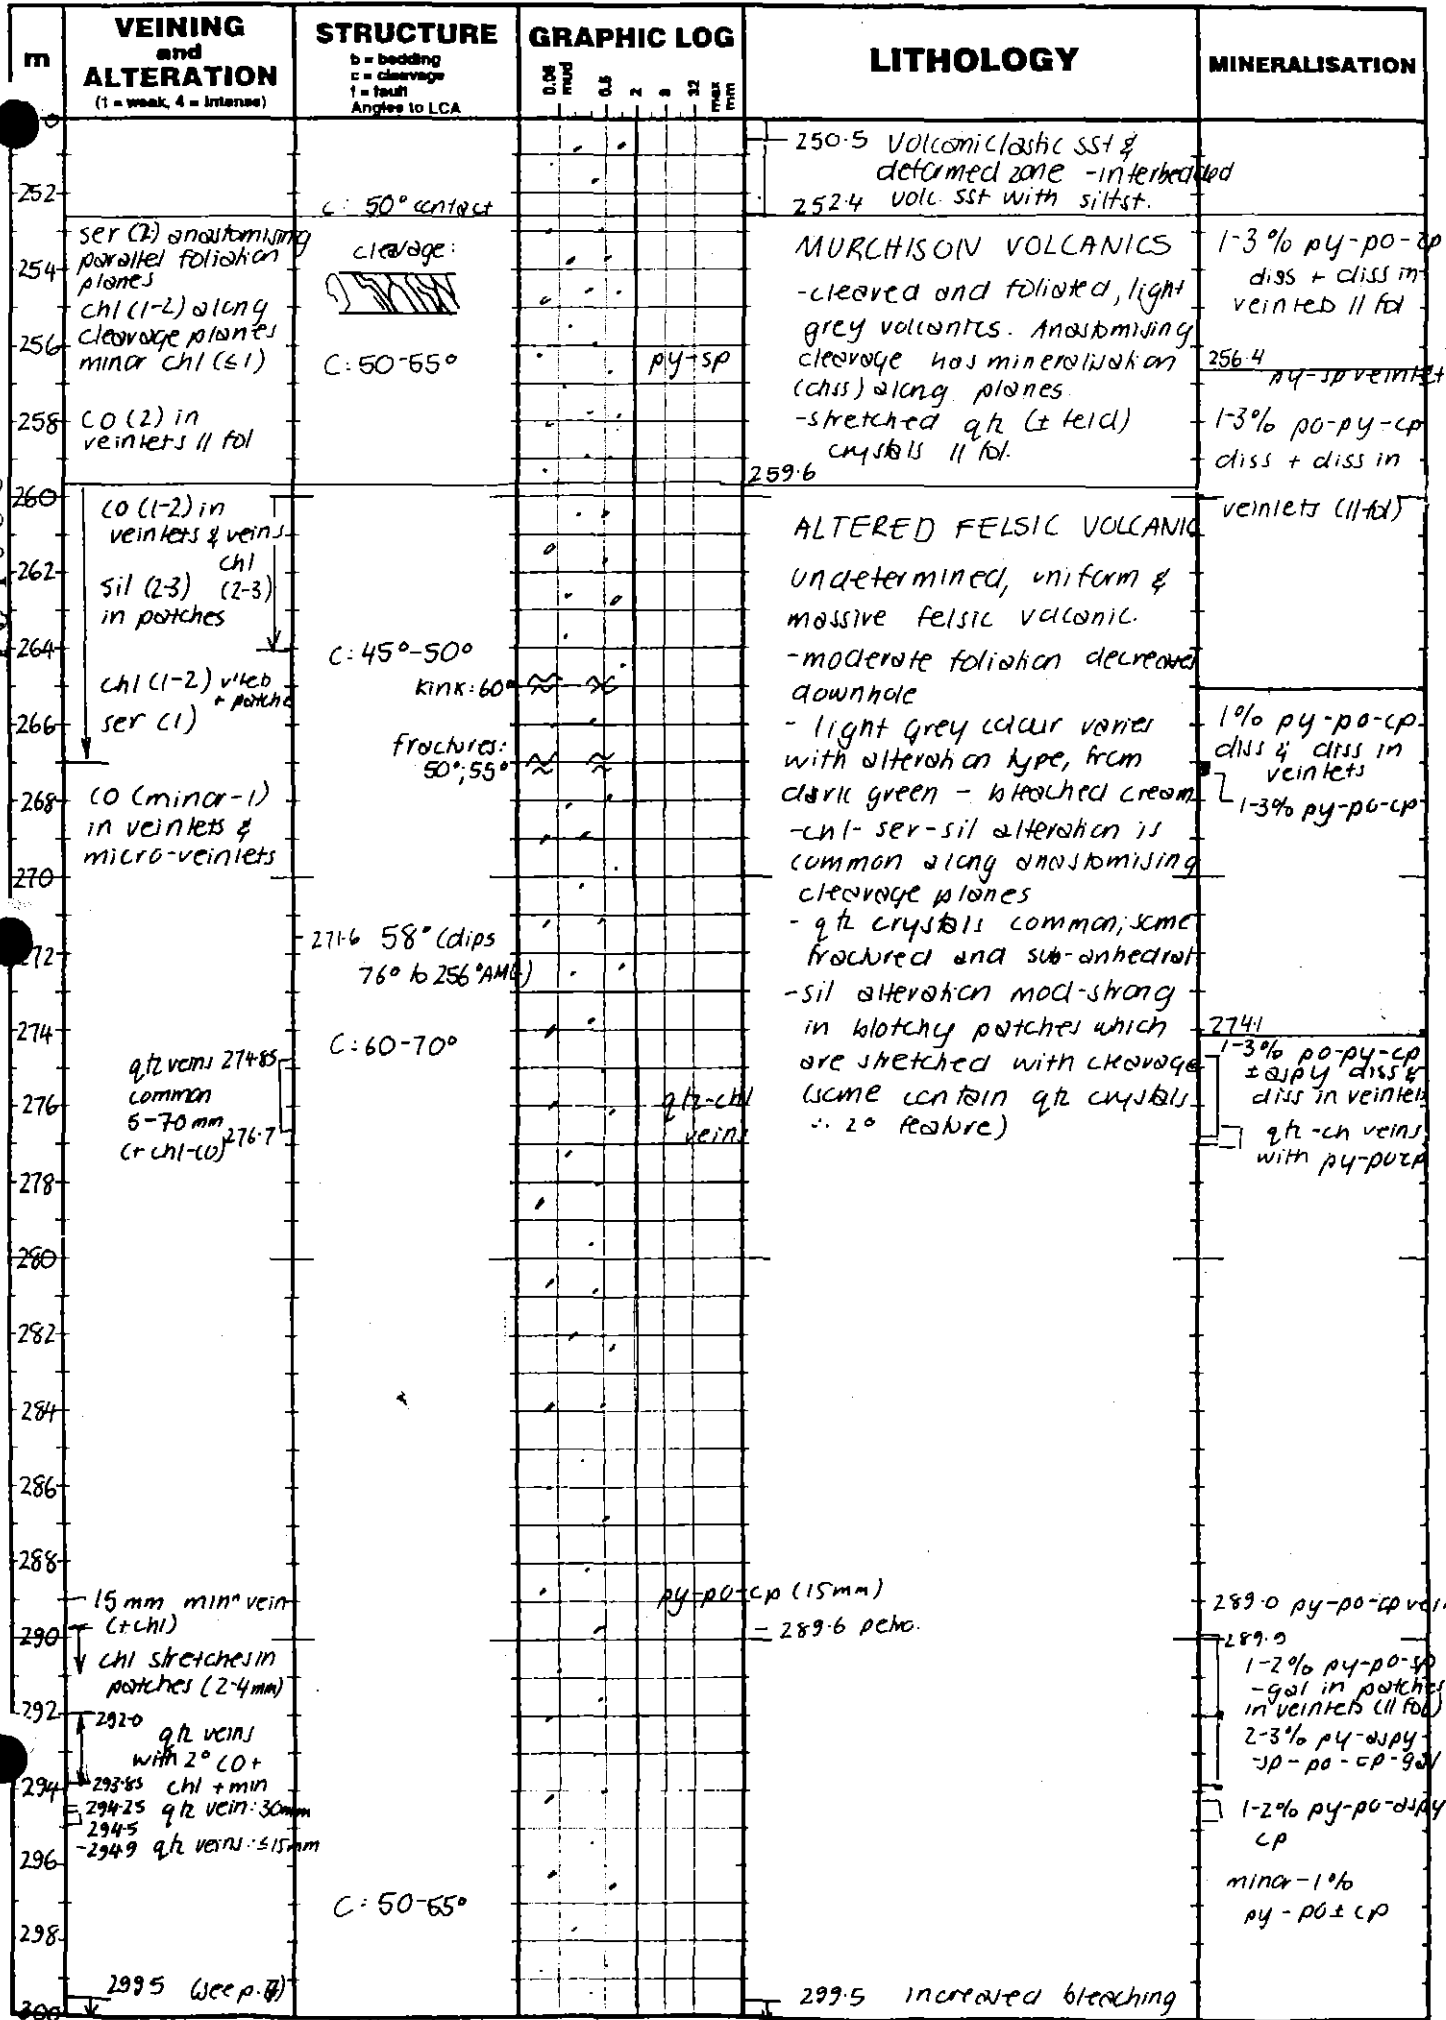 m
VEINING
and
ALTERATION
(1 = weak, 4 = intense)
STRUCTURE
b = bedding
c = cleavage
f = fault
Angles to LCA
GRAPHIC LOG
0.06 mud 0.5 2 8 32 max mm
LITHOLOGY
MINERALISATION
252
254
256
258
260
262
264
266
268
270
272
274
276
278
280
282
284
286
288
290
292
294
296
298
300
ser (2) anastomising
parallel foliation
planes
chl (1-2) along
cleavage planes
minor chl (≤1)
CO (2) in
veinlets // fol
CO (1-2) in
veinlets & veins
chl
sil (2-3) (2-3)
in patches
chl (1-2) v'leb
+ patche
ser (1)
CO (minor-1)
in veinlets &
micro-veinlets
qtz veins 274.85
common
5-70 mm
276.7
(+ chl-CO)
15 mm minn vein
(+chl)
chl stretches in
patches (2-4mm)
292.0
qtz veins
with 2° CO +
293.85 chl + min
294.25 qtz vein: 30mm
294.5
294.9 qtz veins: ≤15mm
299.5 (see p.
c: 50° contact
cleavage:
C: 50-55°
C: 45°-50°
kink: 60°
fractures:
50°; 55°
271.6 58° (dips
76° to 256° AMG)
C: 60-70°
C: 50-55°
py-sp
qtz-chl
veins
py-po-cp (15mm)
250.5 Volcaniclastic sst &
deformed zone - interbedded
252.4 volc. sst with siltst.
MURCHISON VOLCANICS
- cleaved and foliated, light
grey volcanics. Anastomising
cleavage has mineralisation
(diss) along planes.
- stretched qtz (± feld)
crystals // fol.
259.6
ALTERED FELSIC VOLCANIC
undetermined, uniform &
massive felsic volcanic.
- moderate foliation decreases
downhole
- light grey colour varies
with alteration type, from
dark green - bleached cream
- chl-ser-sil alteration is
common along anastomising
cleavage planes
- qtz crystals common; some
fractured and sub-anhedral
- sil alteration mod-strong
in blotchy patches which
are stretched with cleavage
(some contain qtz crystals
∴ 2° feature)
289.6 petro.
299.5 increased bleaching
1-3% py-po-cp
diss + diss in
veinleb // fol
256.4
py-sp veinlet
1-3% po-py-cp
diss + diss in
veinlets (//fol)
1% py-po-cp
diss & diss in
veinlets
1-3% py-po-cp
274.1
1-3% po-py-cp
± aspy diss &
diss in veinlets
qtz-ch veins
with py-po±cp
289.0 py-po-cp vein
289.9
1-2% py-po-sp
-gal in patches
in veinlets (// fol)
2-3% py-aspy-
-sp-po-cp-gal
1-2% py-po-aspy
cp
minor-1%
py-po±cp